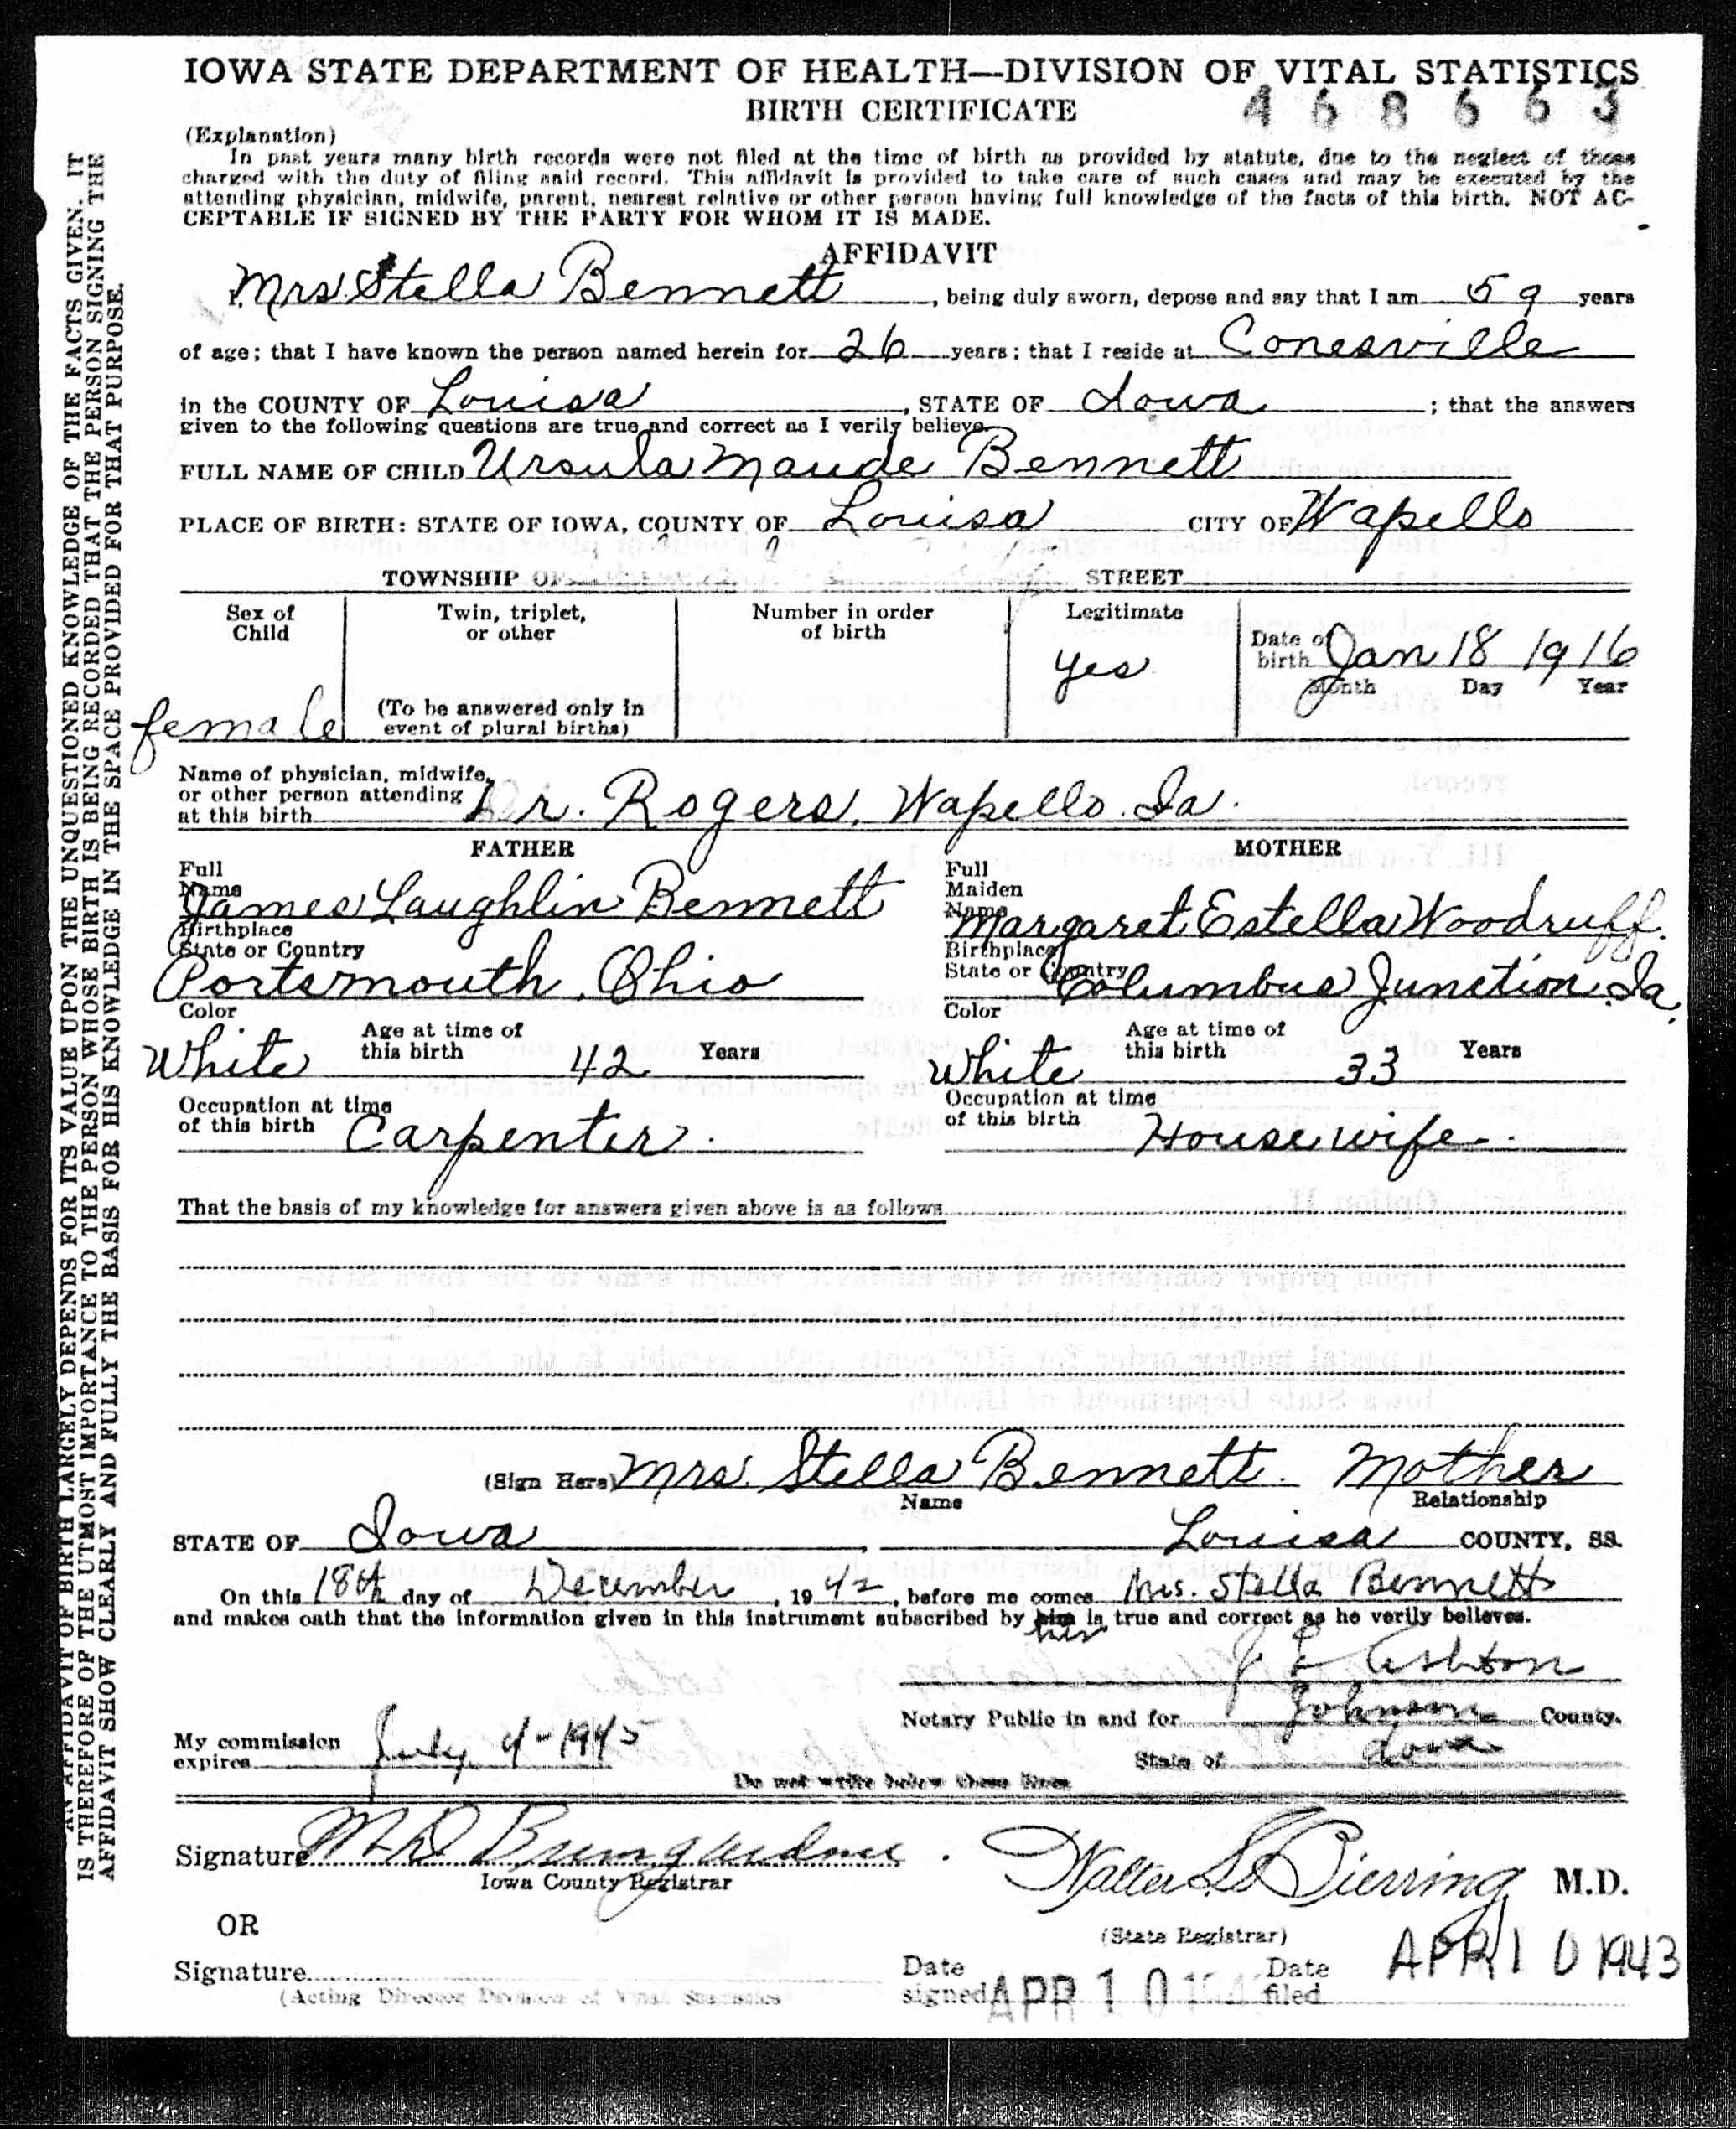 IOWA STATE DEPARTMENT OF HEALTH—DIVISION OF VITAL STATISTICS
BIRTH CERTIFICATE
468663
(Explanation)
In past years many birth records were not filed at the time of birth as provided by statute, due to the neglect of those
charged with the duty of filing said record. This affidavit is provided to take care of such cases and may be executed by the
attending physician, midwife, parent, nearest relative or other person having full knowledge of the facts of this birth. NOT AC-
CEPTABLE IF SIGNED BY THE PARTY FOR WHOM IT IS MADE.
AFFIDAVIT
I, Mrs Stella Bennett, being duly sworn, depose and say that I am 59 years
of age; that I have known the person named herein for 26 years; that I reside at Conesville
in the COUNTY OF Louisa, STATE OF Iowa; that the answers
given to the following questions are true and correct as I verily believe.
FULL NAME OF CHILD Ursula Maude Bennett
PLACE OF BIRTH: STATE OF IOWA, COUNTY OF Louisa CITY OF Wapello
TOWNSHIP OF STREET
Sex of Child female
Twin, triplet, or other
(To be answered only in event of plural births)
Number in order of birth
Legitimate yes
Date of birth Jan 18 1916
Month Day Year
Name of physician, midwife,
or other person attending
at this birth Dr. Rogers, Wapello Ia.
FATHER
Full
Name
James Laughlin Bennett
Birthplace
State or Country
Portsmouth, Ohio
Color
White
Age at time of
this birth 42 Years
Occupation at time
of this birth Carpenter.
MOTHER
Full
Maiden
Name
Margaret Estella Woodruff.
Birthplace
State or Country
Columbus Junction, Ia.
Color
White
Age at time of
this birth 33 Years
Occupation at time
of this birth Housewife.
That the basis of my knowledge for answers given above is as follows
(Sign Here) Mrs. Stella Bennett. Mother
Name Relationship
STATE OF Iowa, Louisa COUNTY, SS.
On this 18th day of December, 1942, before me comes Mrs. Stella Bennett
and makes oath that the information given in this instrument subscribed by him her is true and correct as he verily believes.
J. L. Ashton
Notary Public in and for Johnson County.
My commission
expires July 4-1945
State of Iowa
Do not write below these lines
Signature
Iowa County Registrar
Walter L. Bierring M.D.
(State Registrar)
OR
Signature
(Acting Director Division of Vital Statistics
Date
signed APR 10 194
Date
filed APR 10 1943
AN AFFIDAVIT OF BIRTH LARGELY DEPENDS FOR ITS VALUE UPON THE UNQUESTIONED KNOWLEDGE OF THE FACTS GIVEN. IT
IS THEREFORE OF THE UTMOST IMPORTANCE TO THE PERSON WHOSE BIRTH IS BEING RECORDED THAT THE PERSON SIGNING THE
AFFIDAVIT SHOW CLEARLY AND FULLY THE BASIS FOR HIS KNOWLEDGE IN THE SPACE PROVIDED FOR THAT PURPOSE.